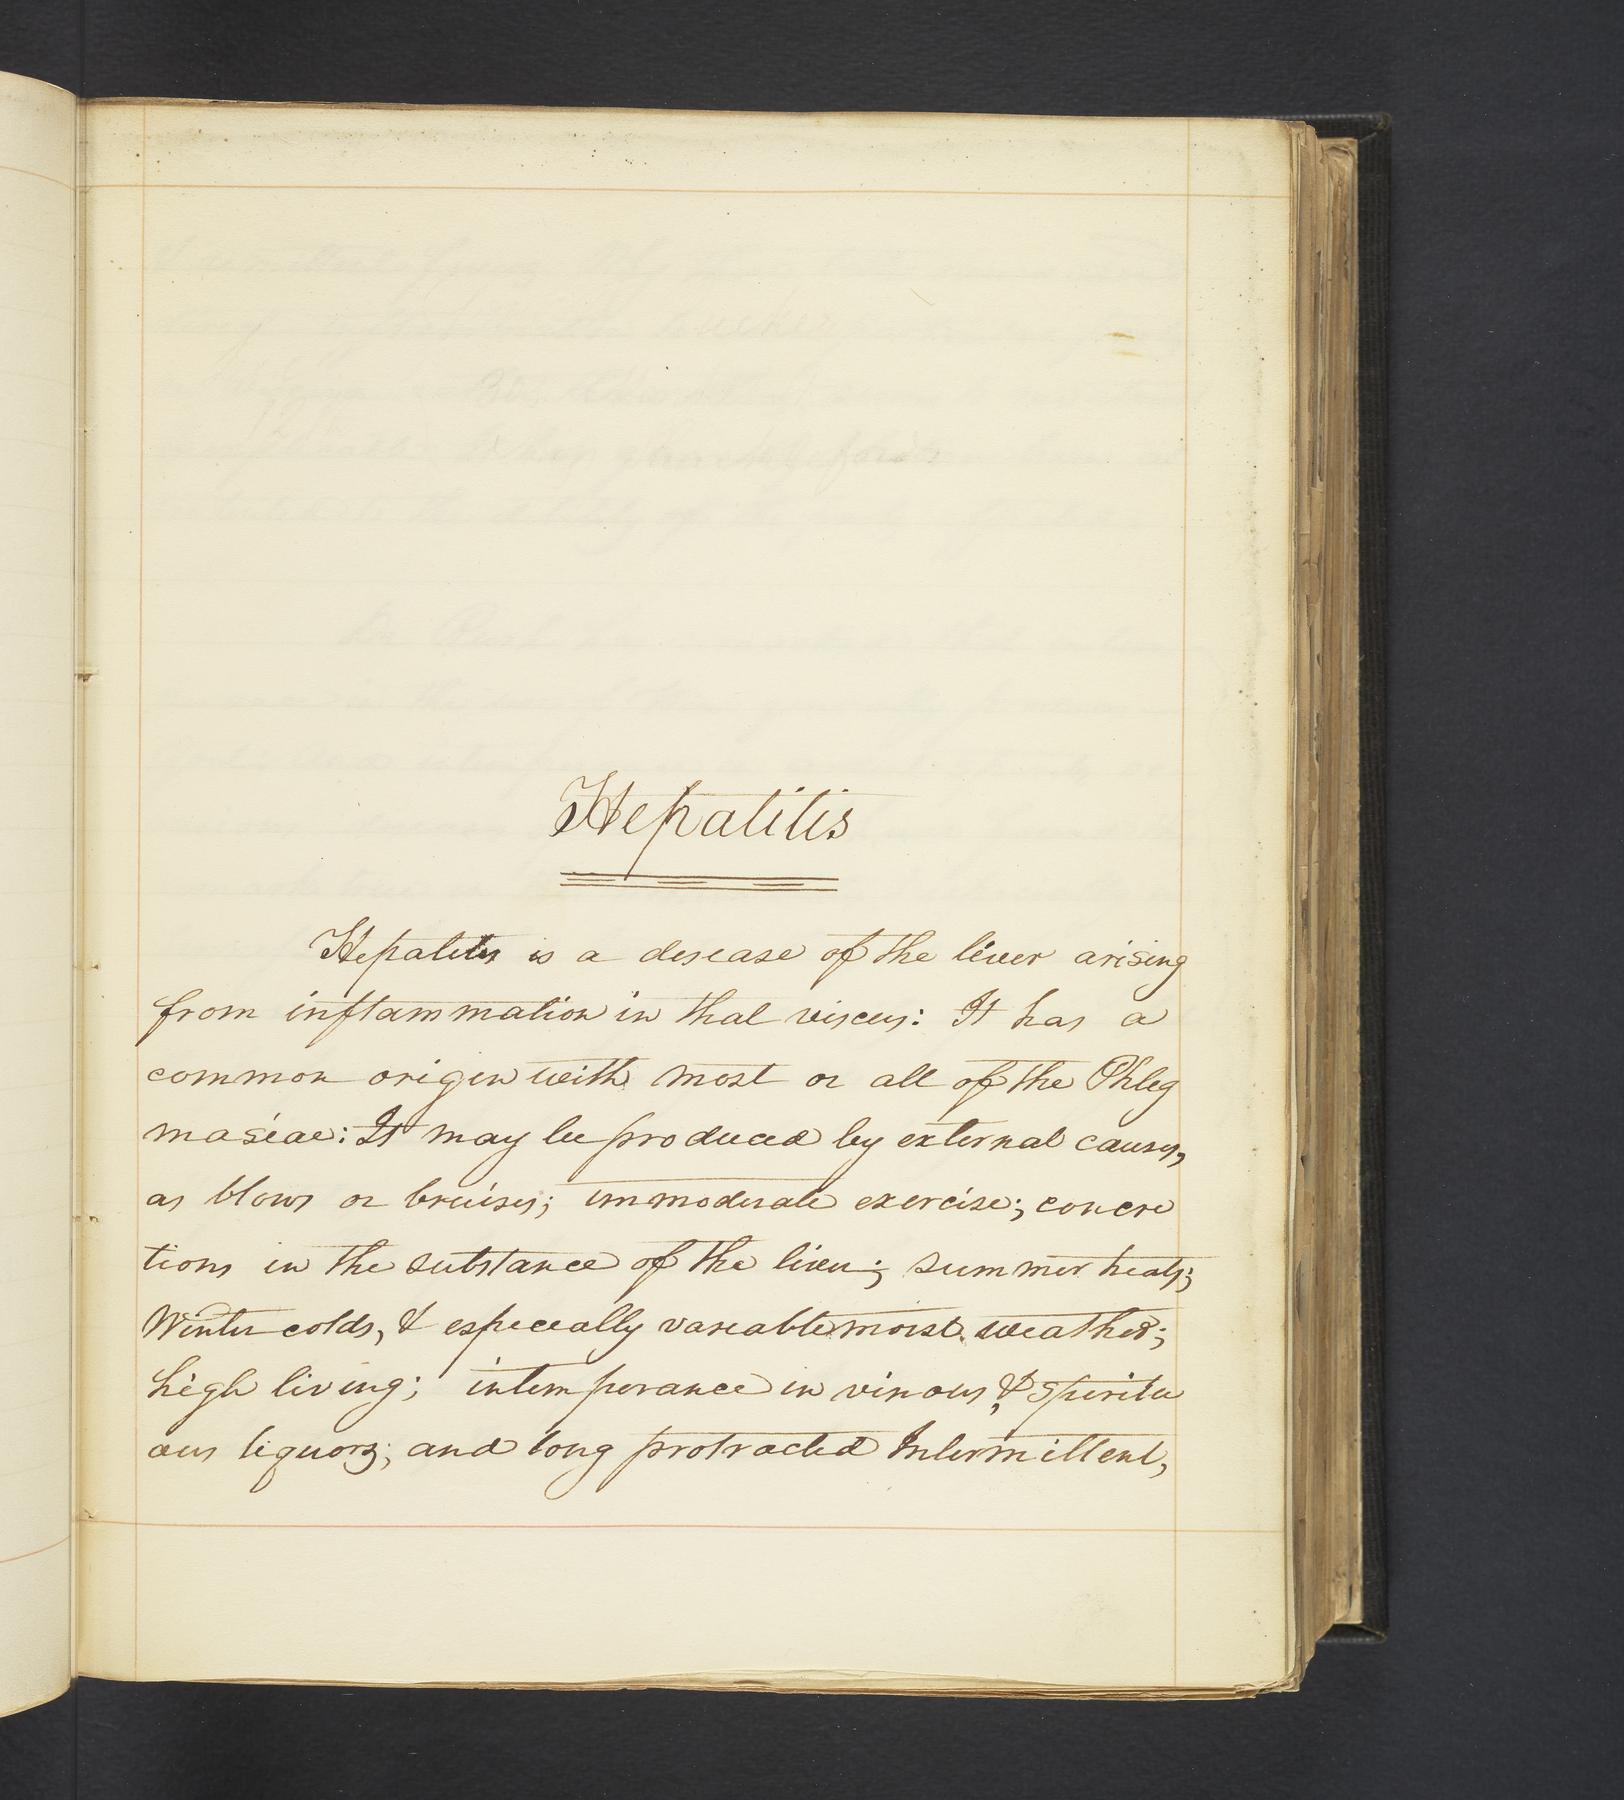 Hepatitis
Hepatitis is a disease of the liver arising
from inflammation in that viscus: It has a
common origin with most or all of the Phleg
masiae: It may be produced by external causes,
as blows or bruises; immoderate exercise; concre
tions in the substance of the liver; summer heats;
Winter colds, & especially variable moist weather;
high living; intemperance in vinous, & spiritu
ous liquors; and long protracted Intermittent,